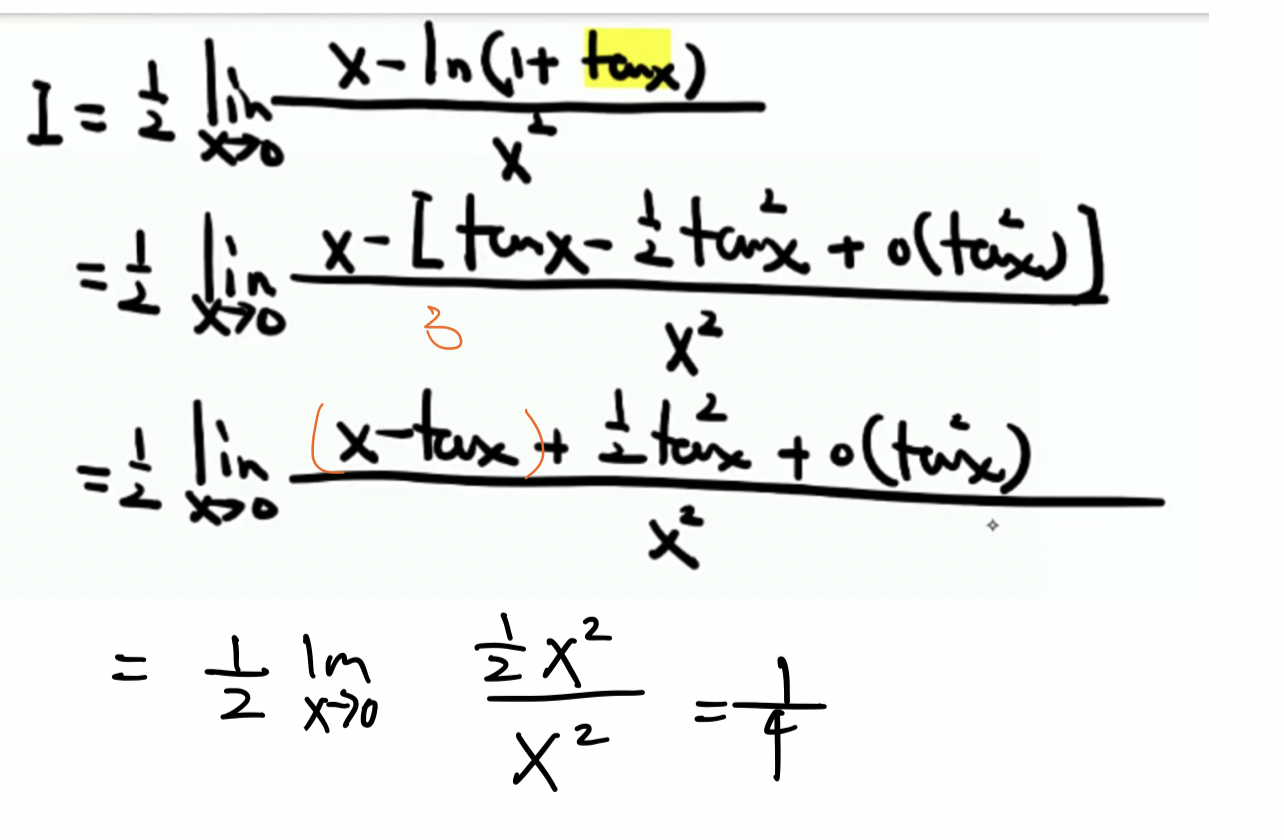 I = 1/2 lim x→0 (x - ln(1 + tanx)) / x²
= 1/2 lim x→0 (x - [tanx - 1/2 tan²x + o(tan²x)]) / x²
3
= 1/2 lim x→0 ((x - tanx) + 1/2 tan²x + o(tan²x)) / x²
= 1/2 lim x→0 (1/2 x²) / x² = 1/4